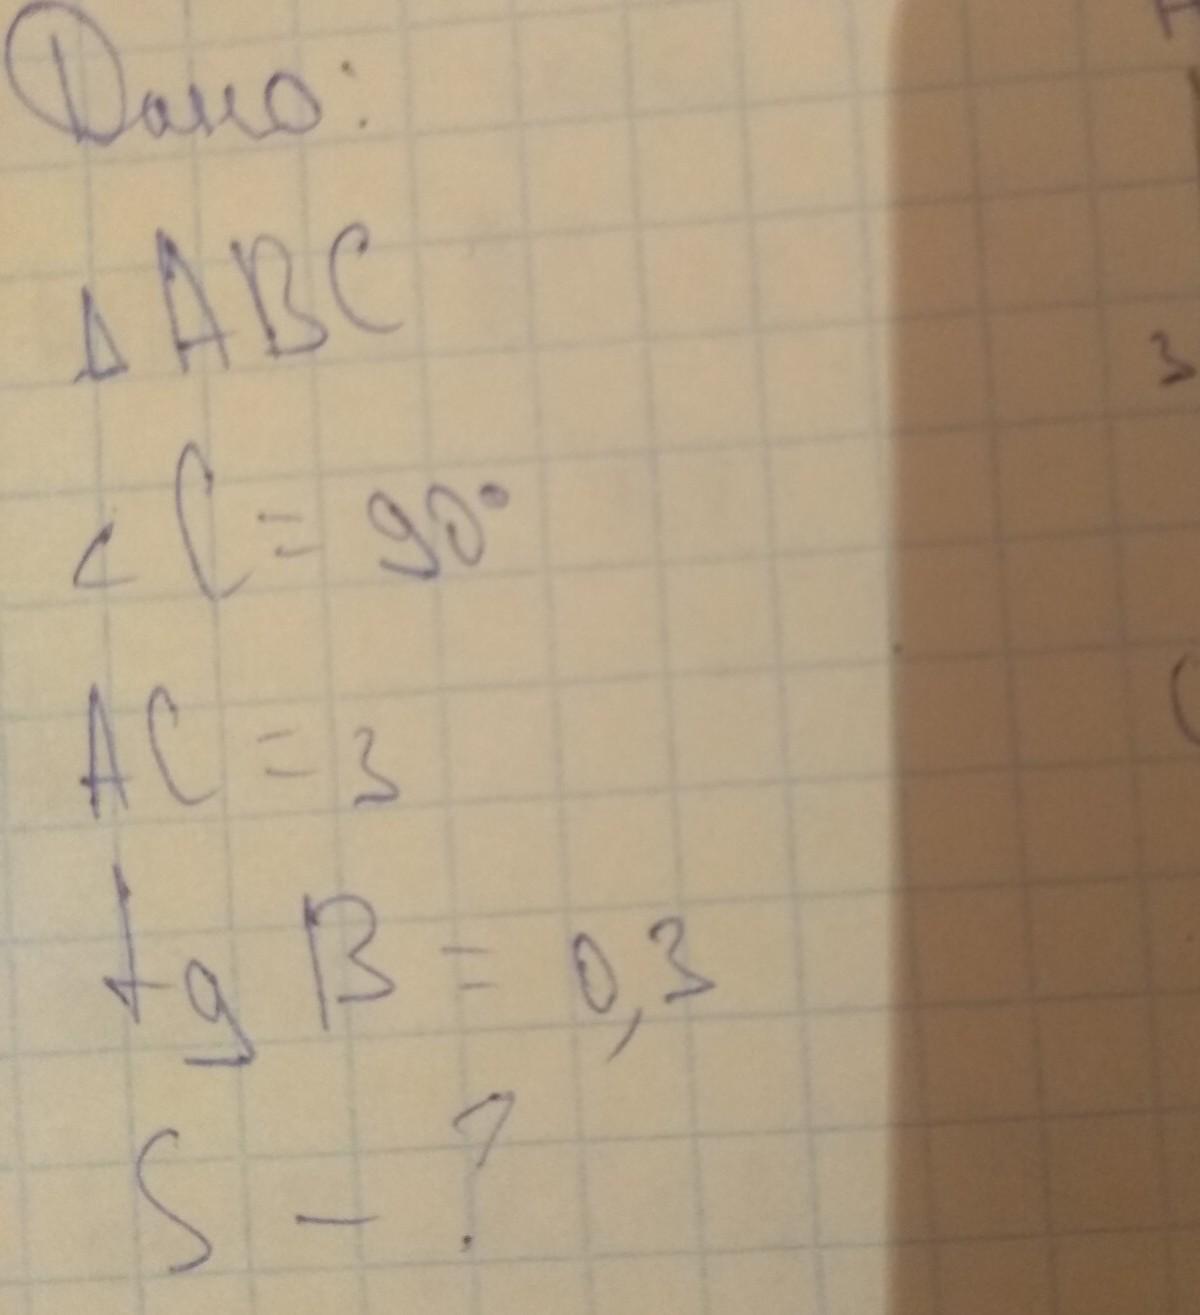 Дано:
△ABC
∠C = 90°
AC = 3
tg B = 0,3
S - ?